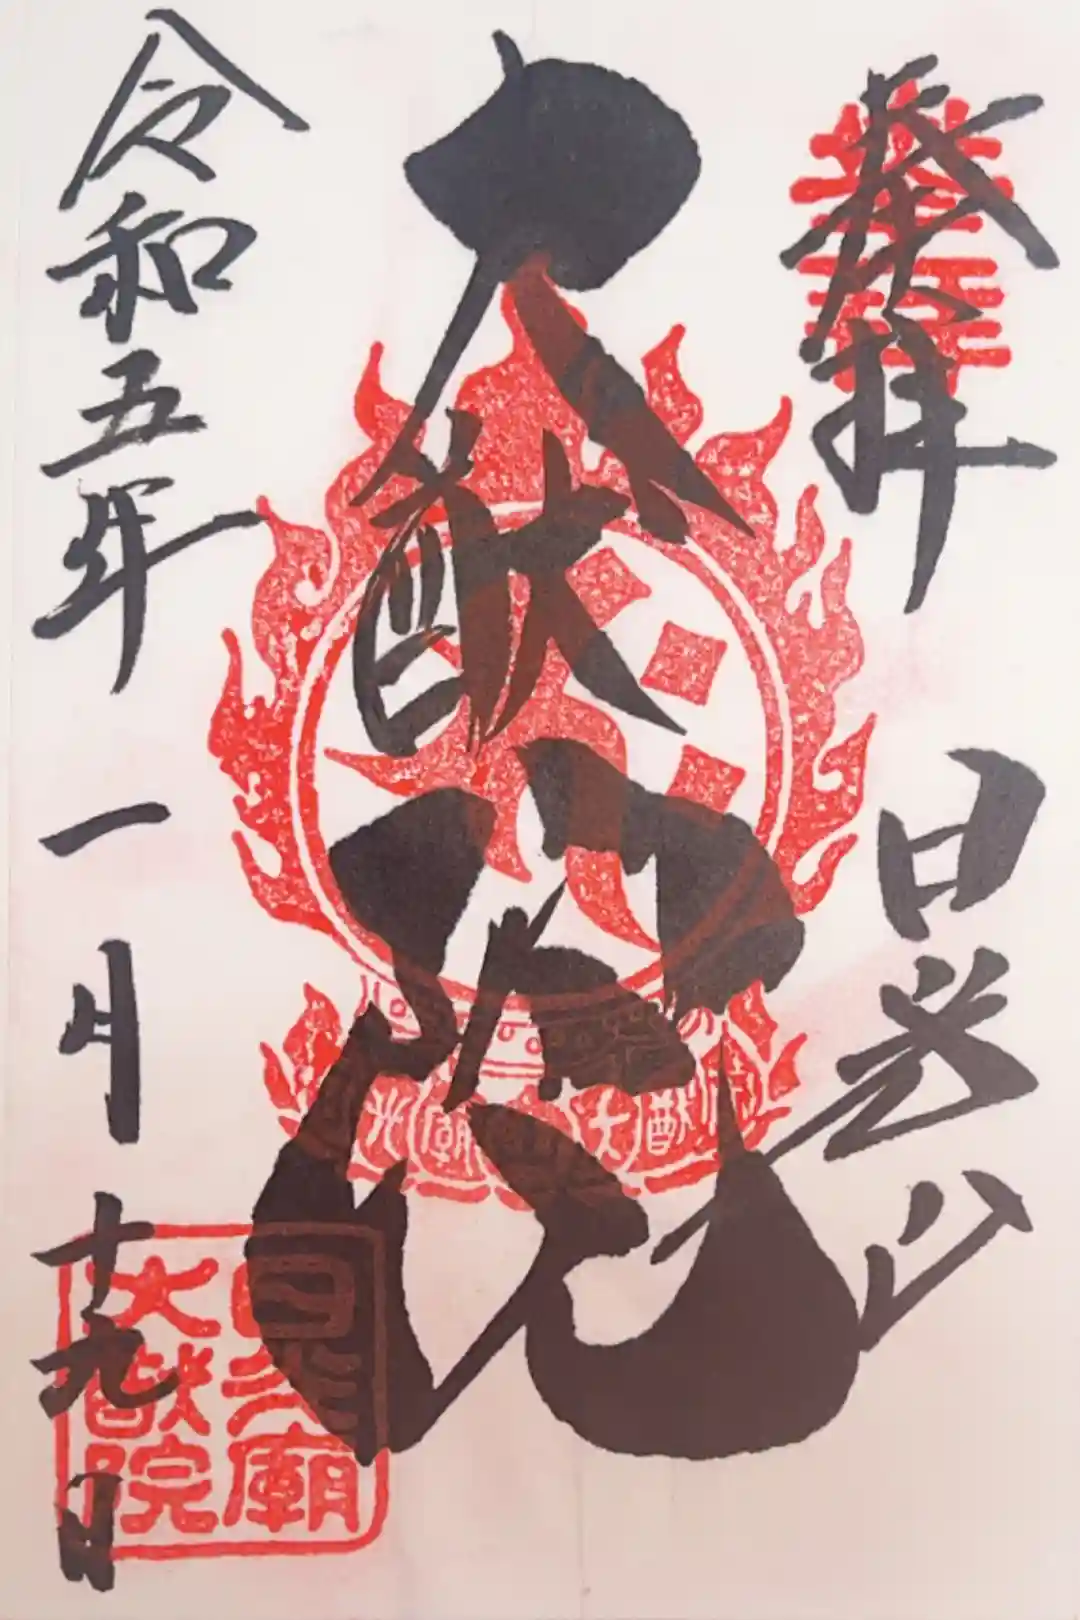 奉拝
日光山
大猷院
令和五年一月十九日
日光廟
大猷院